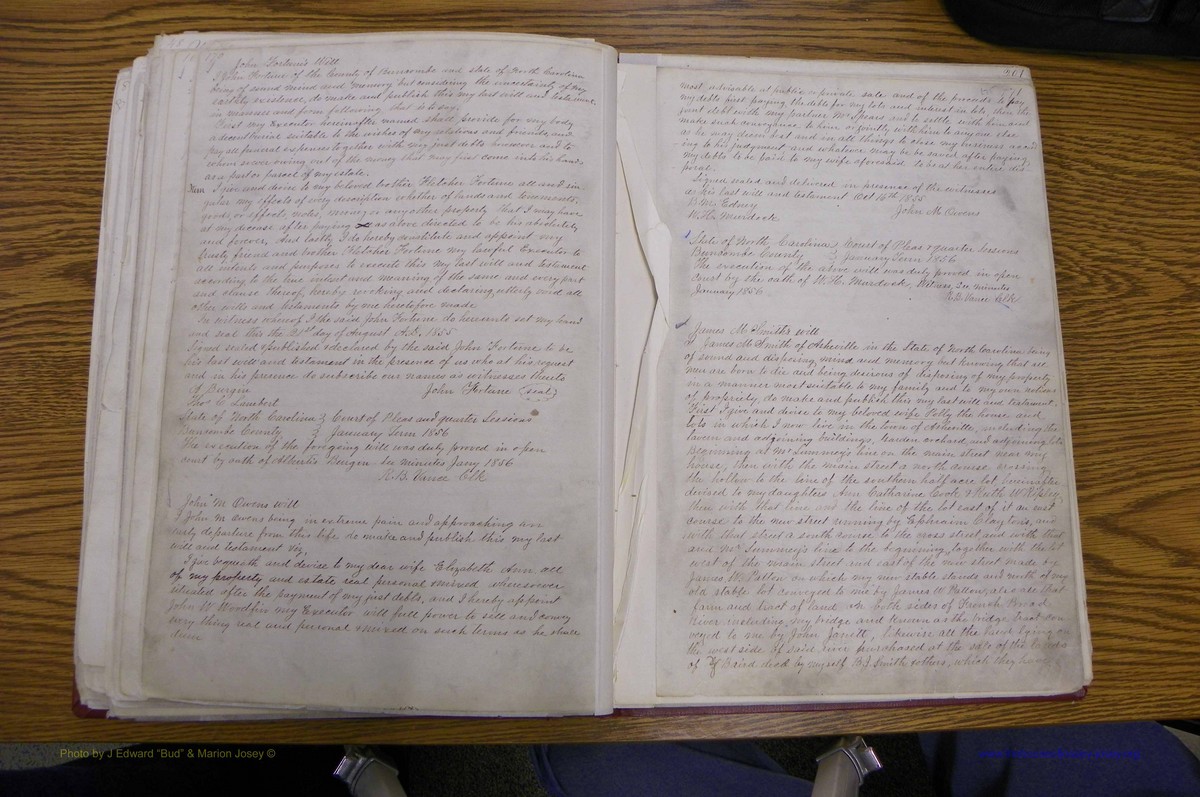 John Fortune's Will
I John Fortune of the County of Buncombe and state of North Carolina
being of sound mind and memory but considering the uncertainty of my
earthly existence, do make and publish this my last will and testament
in manner and form following that is to say;
First my Executor hereinafter named shall provide for my body
a decent burial suitable to the wishes of my relations and friends and
pay all funeral expenses together with my just debts howsoever and to
whom soever owing out of the money that may first come into his hands
as a part or parcel of my estate.
Item I give and devise to my beloved brother Fletcher Fortune all and sin
gular my effects of every description whether of lands and tenements,
goods or effects, notes, money or any other property that I may have
at my decease after paying as above directed to be his absolutely
and forever, And lastly I do hereby constitute and appoint my
trusty friend and brother Fletcher Fortune my lawful Executor to
all intents and purposes to execute this my last will and testament
according to the true intent and meaning of the same and every part
and clause thereof, hereby revoking and declaring utterly void all
other wills and testaments by me heretofore made
In witness whereof I the said John Fortune do hereunto set my hand
and seal this the 21st day of August A.D. 1855
Signed sealed & published & declared by the said John Fortune to be
his last will and testament in the presence of us who at his request
and in his presence do subscribe our names as witnesses thereto
A Burgin
John Fortune (seal)
Thos C Lambert
State of North Carolina } Court of Pleas and quarter Sessions
Buncombe County } January Term 1856
The execution of the foregoing will was duly proved in open
court by oath of Burgin See minutes Jany 1856
R.B. Vance Clk
John M Owens will
I John M Owens being in extreme pain and approaching an
early departure from this life do make and publish this my last
will and testament viz,
I give bequeath and devise to my dear wife Elizabeth Ann all
of my property and estate real personal & mixed whensoever
situated after the payment of my just debts, and I hereby appoint
John W Woodfin my Executor will full power to sell and convey
every thing real and personal & mixed on such terms as he shall
deem
201
most advisable at public or private sale and of the proceeds to pay
my debts first paying the debt for my lots and interest in lots then the
just debt with my partner Mr Spears and to settle with him and
make such arrangements to him or jointly with him to any one else
as he may deem best and in all things to close my business accord
ing to his judgement and whatever may be saved after paying
my debts to be paid to my wife aforesaid to be at her entire dis
posal.
Signed sealed and delivered in presence of the witnesses
as his last will and testament Oct 16th 1855
B M Edney
John M Owens
W. H. Murdock
State of North Carolina } Court of Pleas & quarter Sessions
Buncombe County } January Term 1856
The execution of the above will was duly proved in open
court by the oath of W. H. Murdock Witness, See minutes
January 1856
R.B. Vance Clk
James M Smith's will
I James M Smith of Asheville in the State of North Carolina being
of sound and disposing mind and memory, but knowing that all
men are born to die and being desirous of disposing of my property
in a manner most suitable to my family and to my own notions
of propriety, do make and publish this my last will and testament.
First I give and devise to my beloved wife Polly the house and
lots in which I now live in the town of Asheville, including the
tavern and adjoining buildings, Garden orchard, and adjoining lots
Beginning at Mr Summey's line on the main street near my
house, then with the main street a north course crossing
the hollow to the line of the southern half acre lot hereinafter
devised to my daughters Ann Catharine Cook & Ruth W Ripley,
then with that line and the line of the lot east of it an east
course to the new street running by Ephraim Clayton's, and
with that street a south course to the cross street and with that
and Mr Summey's line to the beginning, together with the lot
west of the main street and east of the new street made by
James W. Patton on which my new stable stands and north of my
old stable lot conveyed to me by James W Patton, also all that
farm and tract of land on both sides of French Broad
River including my bridge and known as the bridge tract con
veyed to me by John Jarrett, likewise all the land lying on
the west side of said river purchased at the sale of the lands
of Baird decd by myself B.J. Smith & others, which they have
Photo by J Edward "Bud" & Marion Josey ©